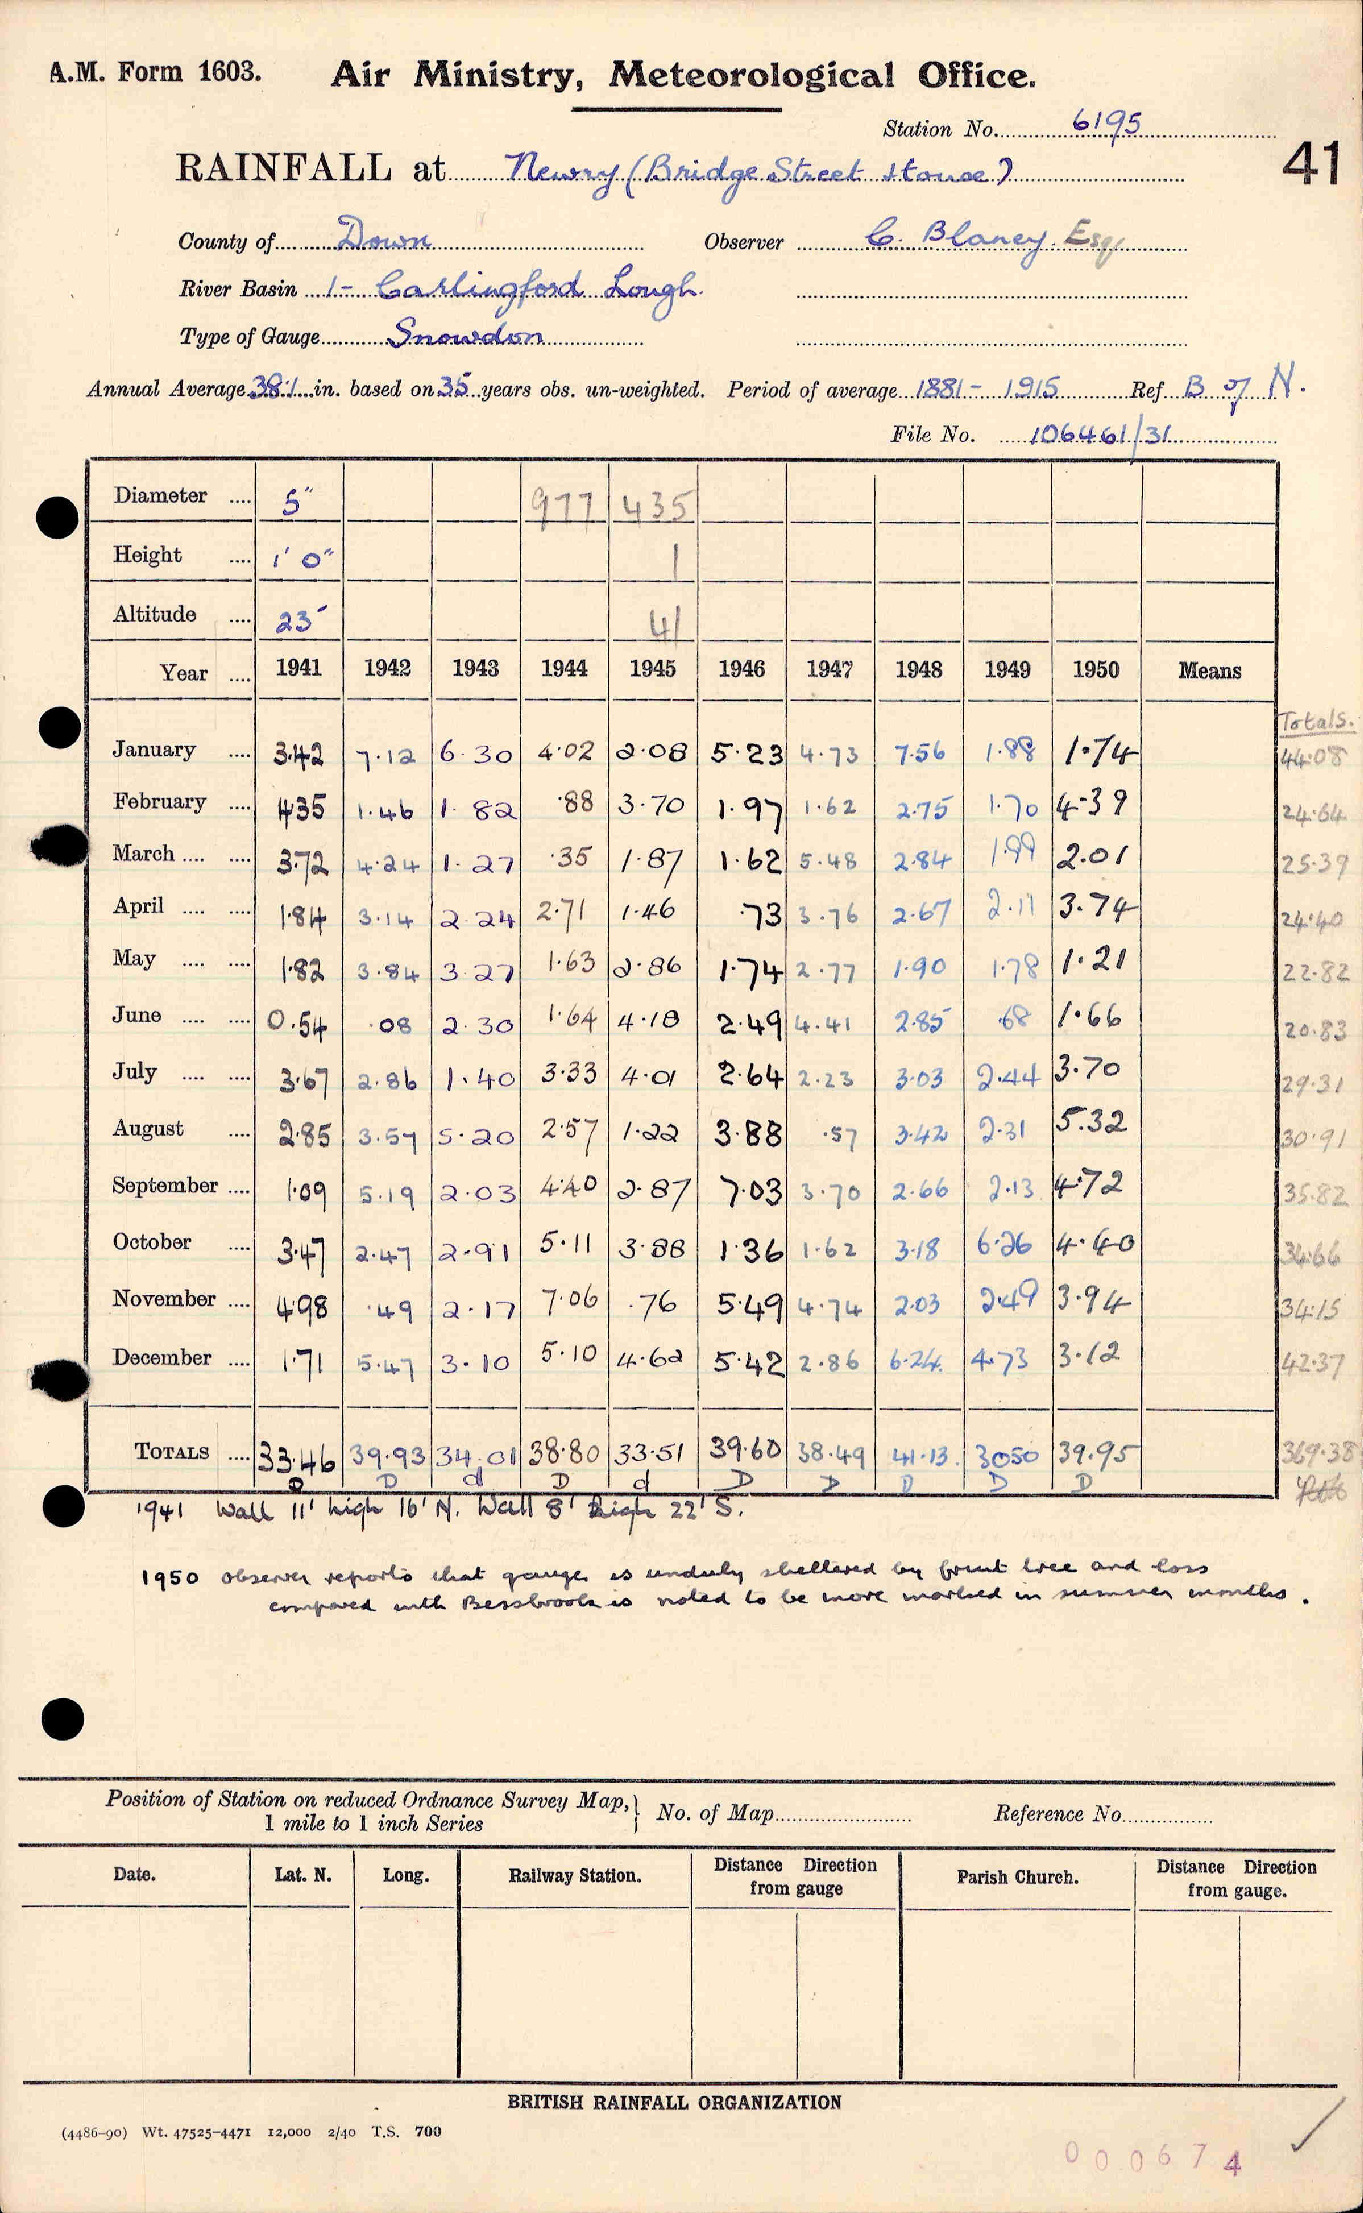 A.M. Form 1603. Air Ministry, Meteorological Office.
Station No. 6195
41
RAINFALL at Newry (Bridge Street House)
County of Down Observer C. Blaney. Esq.
River Basin 1- Carlingford Lough.
Type of Gauge Snowdon
Annual Average 38.1 in. based on 35 years obs. un-weighted. Period of average 1881 - 1915 Ref. B of N.
File No. 106461/31
Diameter .... 5" 977 435
Height .... 1' 0" 1
Altitude .... 23' 41
Year .... 1941 1942 1943 1944 1945 1946 1947 1948 1949 1950 Means
Totals.
January .... 3.42 7.12 6.30 4.02 2.08 5.23 4.73 7.56 1.88 1.74 44.08
February .... 4.35 1.46 1.82 .88 3.70 1.97 1.62 2.75 1.70 4.39 24.64
March .... .... 3.72 4.24 1.27 .35 1.87 1.62 5.48 2.84 1.99 2.01 25.39
April .... .... 1.84 3.14 2.24 2.71 1.46 .73 3.76 2.67 2.11 3.74 24.40
May .... .... 1.82 3.84 3.27 1.63 2.86 1.74 2.77 1.90 1.78 1.21 22.82
June .... .... 0.54 .08 2.30 1.64 4.18 2.49 4.41 2.85 .68 1.66 20.83
July .... .... 3.67 2.86 1.40 3.33 4.01 2.64 2.23 3.03 2.44 3.70 29.31
August .... 2.85 3.57 5.20 2.57 1.22 3.88 .57 3.42 2.31 5.32 30.91
September .... 1.09 5.19 2.03 4.40 2.87 7.03 3.70 2.66 2.13 4.72 35.82
October .... 3.47 2.47 2.91 5.11 3.88 1.36 1.62 3.18 6.26 4.40 34.66
November .... 4.98 .49 2.17 7.06 .76 5.49 4.74 2.03 2.49 3.94 34.15
December .... 1.71 5.47 3.10 5.10 4.62 5.42 2.86 6.24. 4.73 3.12 42.37
TOTALS .... 33.46 39.93 34.01 38.80 33.51 39.60 38.49 41.13. 30.50 39.95 369.38
D D d D d D D D D D
1941 Wall 11' high 16' N. Wall 8' high 22' S.
1950 observer reports that gauge is unduly sheltered by fruit tree and loss
compared with Bessbrook is noted to be more marked in summer months.
Position of Station on reduced Ordnance Survey Map, 1 mile to 1 inch Series } No. of Map Reference No.
Date. Lat. N. Long. Railway Station. Distance Direction from gauge Parish Church. Distance Direction from gauge.
BRITISH RAINFALL ORGANIZATION
(4486-90) Wt. 47525-4471 12,000 2/40 T.S. 700
000674